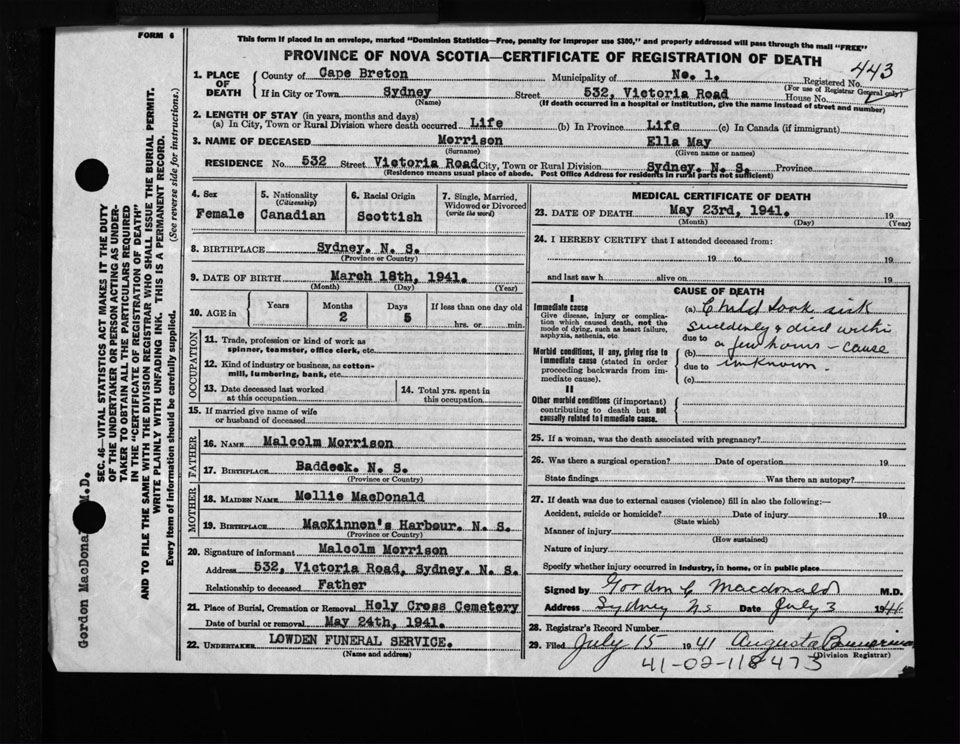 FORM 6
This form if placed in an envelope, marked "Dominion Statistics—Free, penalty for improper use $300," and properly addressed will pass through the mail "FREE"
PROVINCE OF NOVA SCOTIA—CERTIFICATE OF REGISTRATION OF DEATH
443
1. PLACE OF DEATH
County of Cape Breton Municipality of No. 1. Registered No.
(For use of Registrar General only)
If in City or Town Sydney Street 532, Victoria Road House No.
(Name) (If death occurred in a hospital or institution, give the name instead of street and number)
2. LENGTH OF STAY (in years, months and days)
(a) In City, Town or Rural Division where death occurred Life (b) In Province Life (c) In Canada (if immigrant)
3. NAME OF DECEASED Morrison Ella May
(Surname) (Given name or names)
RESIDENCE No. 532 Street Victoria Road City, Town or Rural Division Sydney. N. S. Province
(Residence means usual place of abode. Post Office Address for residents in rural parts not sufficient)
4. Sex
Female
5. Nationality
(Citizenship)
Canadian
6. Racial Origin
Scottish
7. Single, Married, Widowed or Divorced
(write the word)
8. BIRTHPLACE Sydney. N. S.
(Province or Country)
9. DATE OF BIRTH March 18th, 1941.
(Month) (Day) (Year)
10. AGE in
Years Months Days If less than one day old
2 5 hrs. or min.
OCCUPATION
11. Trade, profession or kind of work as
spinner, teamster, office clerk, etc.
12. Kind of industry or business, as cotton-
mill, lumbering, bank, etc.
13. Date deceased last worked
at this occupation
14. Total yrs. spent in
this occupation
15. If married give name of wife
or husband of deceased
FATHER
16. NAME Malcolm Morrison
17. BIRTHPLACE Baddeck. N. S.
(Province or Country)
MOTHER
18. MAIDEN NAME Mollie MacDonald
19. BIRTHPLACE MacKinnon's Harbour. N. S.
(Province or Country)
20. Signature of informant Malcolm Morrison
Address 532, Victoria Road, Sydney. N. S.
Relationship to deceased Father
21. Place of Burial, Cremation or Removal Holy Cross Cemetery
Date of burial or removal May 24th, 1941.
22. UNDERTAKER LOWDEN FUNERAL SERVICE.
(Name and address)
MEDICAL CERTIFICATE OF DEATH
23. DATE OF DEATH May 23rd, 1941. 19
(Month) (Day) (Year)
24. I HEREBY CERTIFY that I attended deceased from:
19 to 19
and last saw h alive on 19
CAUSE OF DEATH
I
Immediate cause
Give disease, injury or complica-
tion which caused death, not the
mode of dying, such as heart failure,
asphyxia, asthenia, etc.
Morbid conditions, if any, giving rise to
immediate cause (stated in order
proceeding backwards from im-
mediate cause).
II
Other morbid conditions (if important)
contributing to death but not
causally related to immediate cause.
(a) Child took sick
suddenly & died within
due to
a few hours - cause
(b)
due to unknown.
(c)
25. If a woman, was the death associated with pregnancy?
26. Was there a surgical operation? Date of operation 19
State findings Was there an autopsy?
27. If death was due to external causes (violence) fill in also the following:—
Accident, suicide or homicide? Date of injury 19
(State which)
Manner of injury
(How sustained)
Nature of injury
Specify whether injury occurred in industry, in home, or in public place
Signed by Gordon C Macdonald M.D.
Address Sydney N.S. Date July 3 1941
28. Registrar's Record Number
29. Filed July 15 1941 Augusta
(Division Registrar)
41-02-118473
SEC. 46—VITAL STATISTICS ACT MAKES IT THE DUTY
OF THE UNDERTAKER OR PERSON ACTING AS UNDER-
TAKER TO OBTAIN ALL THE PARTICULARS REQUIRED
IN THE "CERTIFICATE OF REGISTRATION OF DEATH"
AND TO FILE THE SAME WITH THE DIVISION REGISTRAR WHO SHALL ISSUE THE BURIAL PERMIT.
WRITE PLAINLY WITH UNFADING INK. THIS IS A PERMANENT RECORD.
Every item of Information should be carefully supplied. (See reverse side for instructions.)
Gordon MacDona M.D.